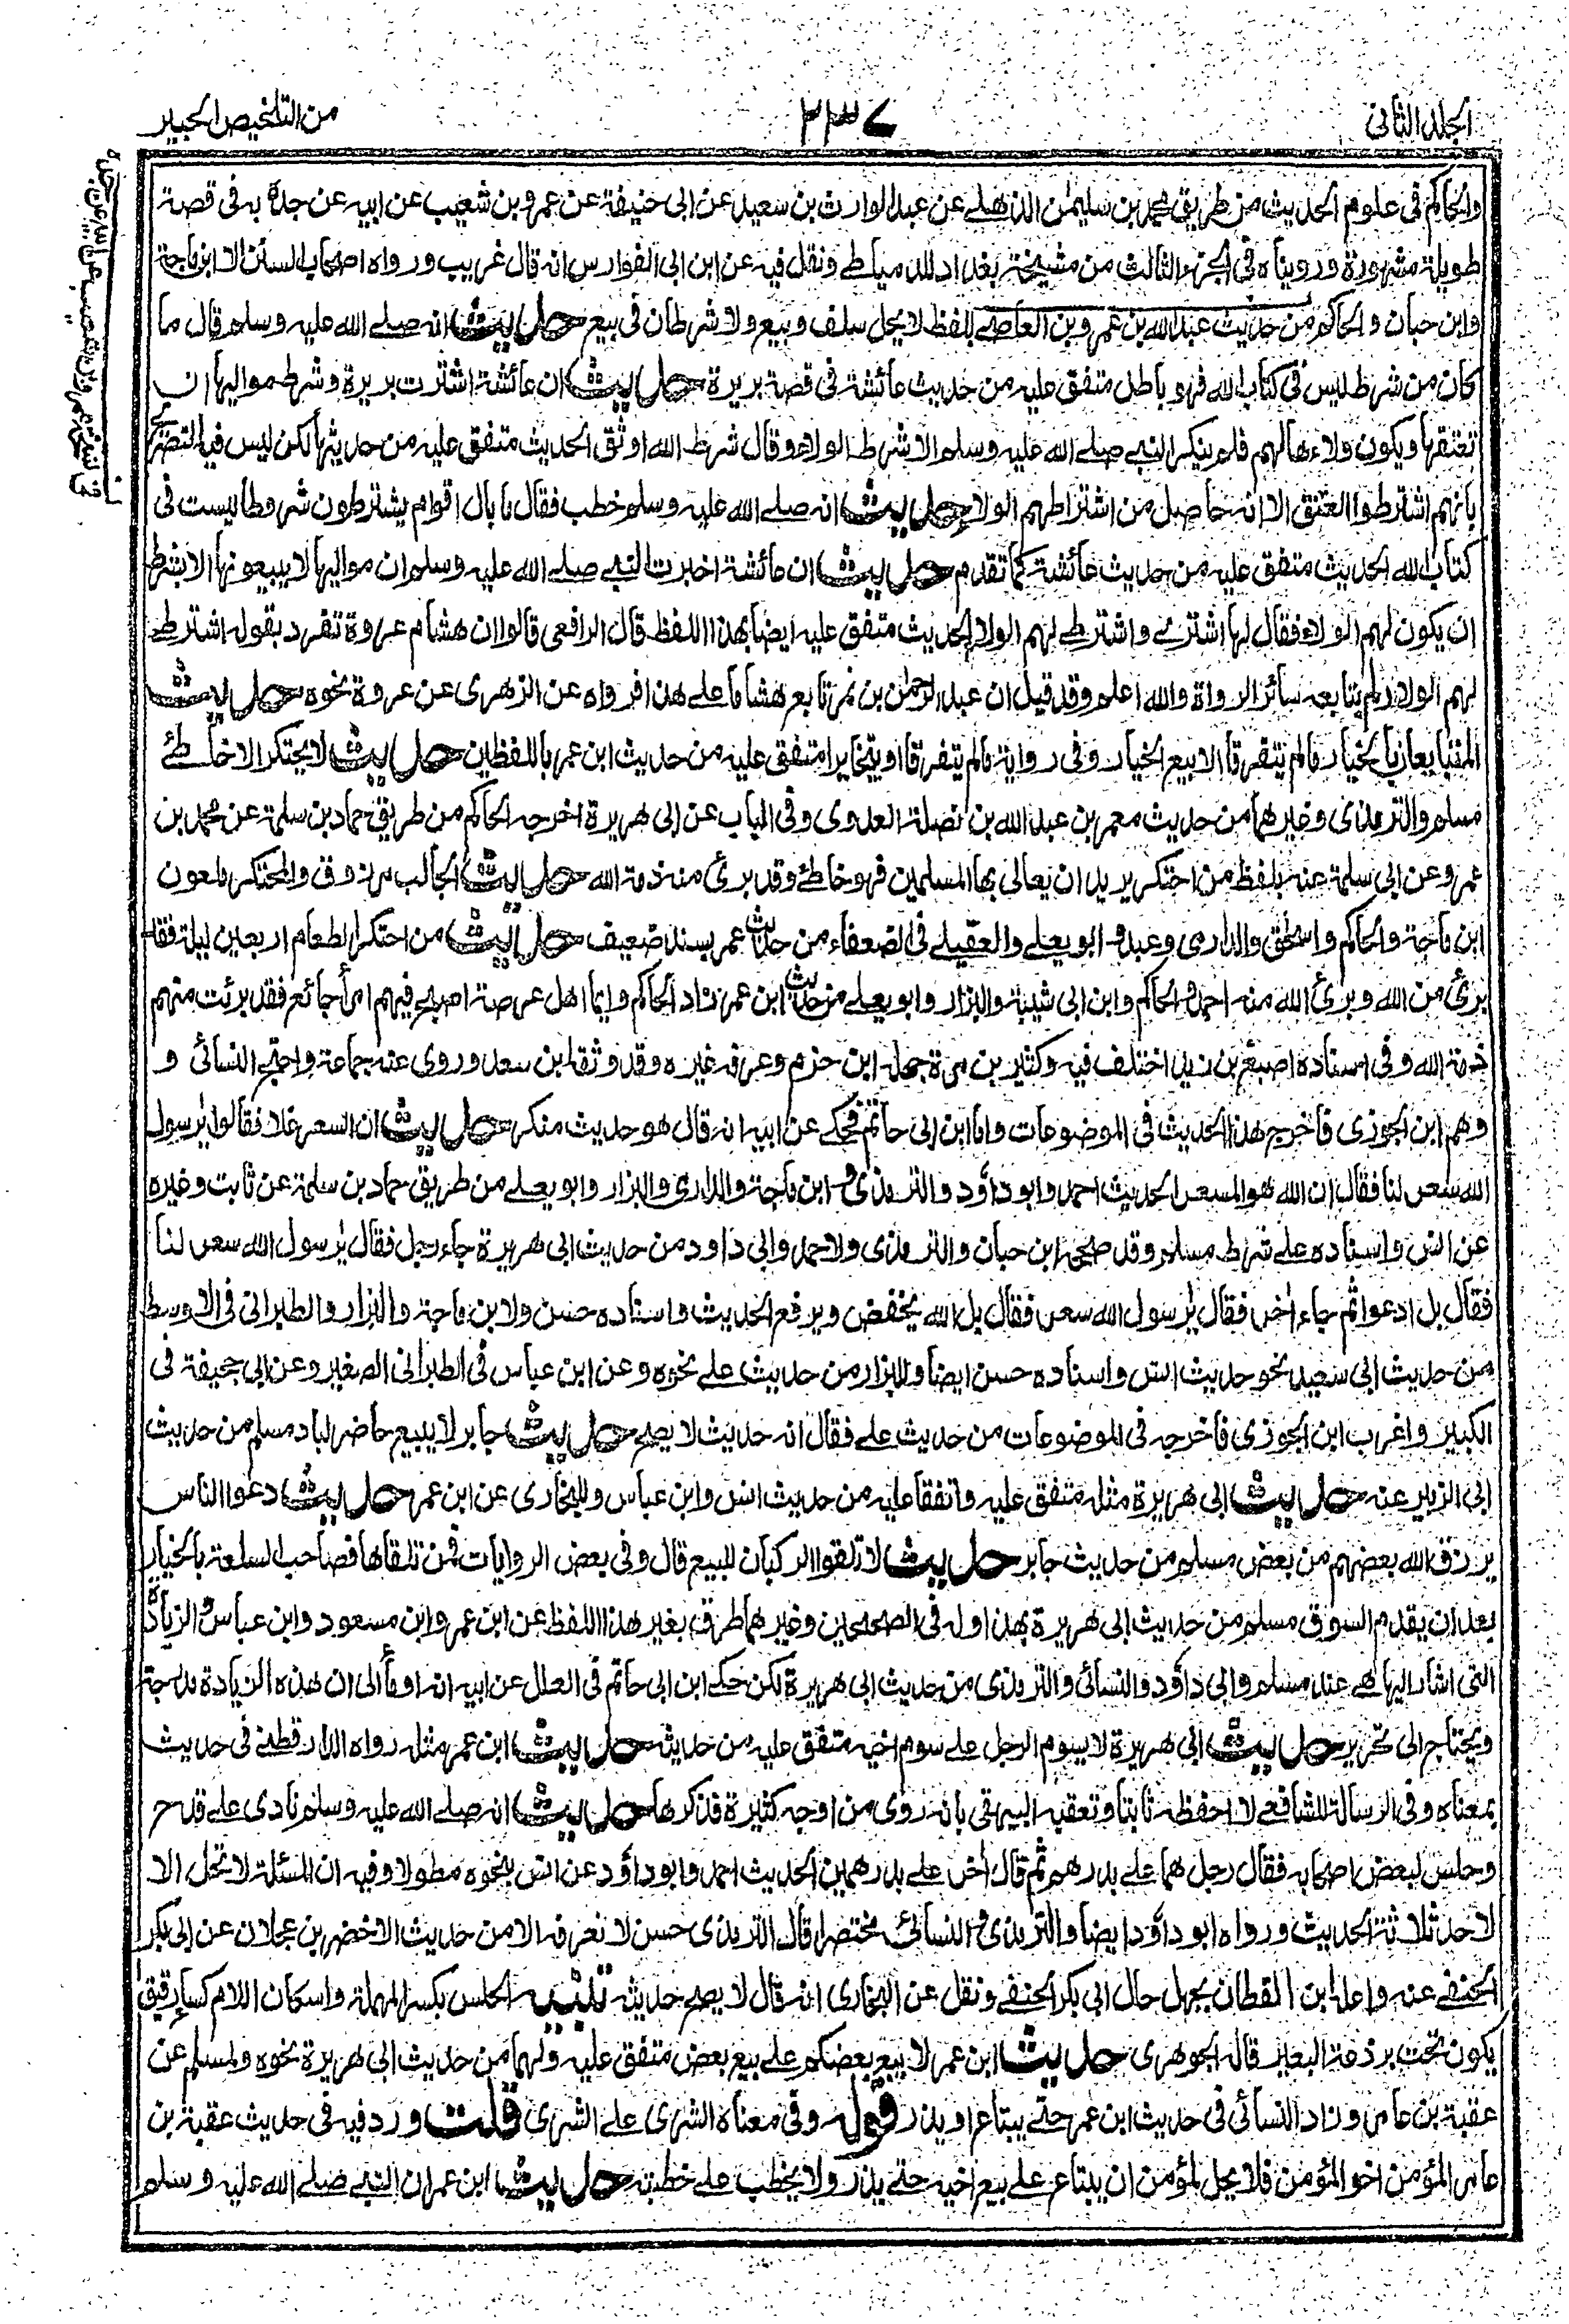 الجلد الثانى
٢٣٧
من التلخيص الحبير
والحاكم فى علوم الحديث من طريق محمد بن سليمن الذهلے عن عبد الوارث بن سعيد عن ابى حنيفة عن عمرو بن شعيب عن ابيه عن جده به فى قصة
طويلة مشهورة ورويناه فى الجزء الثالث من مشيخة بغداد للدمياطے ونقل فيه عن ابن ابى الفوارس انه قال غريب ورواه اصحاب السنن الا ابن ماجة
وابن حبان والحاكم من حديث عبد الله بن عمرو بن العاصے بلفظ لا يحل سلف وبيع ولا شرطان فى بيع حديث انه صلے الله عليه وسلم قال ما
كان من شرط ليس فى كتاب الله فهو باطل متفق عليه من حديث عائشة فى قصة بريرة حديث ان عائشة اشترت بريرة وشرط مواليها ان
تعتقها ويكون ولاءها لهم فلم ينكر النبے صلے الله عليه وسلم الا شرط الولاء وقال شرط الله اوثق الحديث متفق عليه من حديثها لكن ليس فيه التصريح
بانهم اشترطوا العتق الا انه حاصل من اشتراطهم الولاء حديث انه صلے الله عليه وسلم خطب فقال ما بال اقوام يشترطون شروطا ليست فى
كتاب الله الحديث متفق عليه من حديث عائشة كما تقدم حديث ان عائشة اخبرت النبے صلے الله عليه وسلم ان مواليها لا يبيعونها الا بشرط
ان يكون لهم الولاء فقال لها اشترے واشترطے لهم الولاء الحديث متفق عليه ايضا بهذا اللفظ قال الرافعى قالوا ان هشام عروة تفرد بقوله اشترطے
لهم الولاء ولم يتابعه سائر الرواة والله اعلم وقد قيل ان عبد الرحمن بن نمر تابع هشاما علے هذا فرواه عن الزهرى عن عروة نحوه حديث
المتبايعان بالخيار ما لم يتفرقا الا بيع الخيار وفى رواية ما لم يتفرقا او يتخايرا متفق عليه من حديث ابن عمر باللفظين حديث لا يحتكر الا خاطئ
مسلم والترمذى وغيرهما من حديث معمر بن عبد الله بن نضلة العدوى وفى الباب عن ابى هريرة اخرجه الحاكم من طريق حماد بن سلمة عن محمد بن
عمرو عن ابى سلمة عنه بلفظ من احتكر يريد ان يغالى بها المسلمين فهو خاطئ وقد برئ منه ذمة الله حديث الجالب مرزوق والمحتكر ملعون
ابن ماجة والحاكم واسحق والدارمى وعبد وابو يعلے والعقيلے فى الضعفاء من حديث عمر بسند ضعيف حديث من احتكر الطعام اربعين ليلة فقد
برئ من الله وبرئ الله منه احمد والحاكم وابن ابى شيبة والبزار وابو يعلے من حديث ابن عمر زاد الحاكم وايما اهل عرصة اصبح فيهم امرأ جائع فقد برئت منهم
ذمة الله وفى اسناده اصبغ بن زيد اختلف فيه وكثير بن مرة جهله ابن حزم وعرفه غيره وقد وثقه ابن سعد وروى عنه جماعة واحتج النسائى و
وهم ابن الجوزى فاخرج هذا الحديث فى الموضوعات واما ابن ابى حاتم فحكے عن ابيه انه قال هو حديث منكر حديث ان السعر غلا فقالوا يرسول
الله سعر لنا فقال ان الله هو المسعر الحديث احمد وابو داؤد والترمذى وابن ماجة والدارمى والبزار وابو يعلے من طريق حماد بن سلمة عن ثابت وغيره
عن انس واسناده علے شرط مسلم وقد صححه ابن حبان والترمذى ولاحمد وابى داود من حديث ابى هريرة جاء رجل فقال يرسول الله سعر لنا
فقال بل ادعوا ثم جاء اخر فقال يرسول الله سعر فقال بل الله يخفض ويرفع الحديث واسناده حسن ولابن ماجة والبزار والطبرانى فى الاوسط
من حديث ابى سعيد نحو حديث انس واسناده حسن ايضا وللبزار من حديث علے نحوه وعن ابن عباس فى الطبرانى الصغير وعن ابى جحيفة فى
الكبير واغرب ابن الجوزى فاخرجه فى الموضوعات من حديث علے فقال انه حديث لا يصح حديث جابر لا يبيع حاضر لباد مسلم من حديث
ابى الزبير عنه حديث ابى هريرة مثله متفق عليه واتفقا عليه من حديث انس وابن عباس وللبخارى عن ابن عمر حديث دعوا الناس
يرزق الله بعضهم من بعض مسلم من حديث جابر حديث لا تلقوا الركبان للبيع قال وفى بعض الروايات فمن تلقاها فصاحب السلعة بالخيار
بعد ان يقدم السوق مسلم من حديث ابى هريرة بهذا وله فى الصحيحين وغيرهما طرق بغير هذا اللفظ عن ابن عمر وابن مسعود وابن عباس والزيادة
التى اشار اليها هے عند مسلم وابى داؤد والنسائى والترمذى من حديث ابى هريرة لكن حكے ابن ابى حاتم فى العلل عن ابيه انه اومأ الى ان هذه الزيادة مدرجة
ويحتاج الى تحرير حديث ابى هريرة لا يسوم الرجل علے سوم اخيه متفق عليه من حديثه حديث ابن عمر مثله رواه الدارقطنے فى حديث
بمعناه وفى الرسالة للشافعے لا احفظه ثابتا وتعقبه البيهقى بانه روى من اوجه كثيرة فذكرها حديث انه صلے الله عليه وسلم نادى علے قدح
وحلس لبعض اصحابه فقال رجل هما علے بدرهم ثم قال أخر علے بدرهمين الحديث احمد وابو داؤد عن انس بنحوه مطولا وفيه ان المسئلة لا تحل الا
لاحد ثلاثة الحديث ورواه ابو داؤد ايضا والترمذى والنسائى مختصرا قال الترمذى حسن لا نعرفه الا من حديث الاخضر بن عجلان عن ابى بكر
الحنفے عنه واعله ابن القطان بجهل حال ابى بكر الحنفے ونقل عن البخارى انه قال لا يصح حديثه تنبيه الحلس بكسر المهملة واسكان اللام كساء رقيق
يكون تحت برذعة البعير قاله الجوهرى حديث ابن عمر لا يبيع بعضكم علے بيع بعض متفق عليه ولهما من حديث ابى هريرة نحوه ولمسلم عن
عقبة بن عامر وزاد النسائى فى حديث ابن عمر حتے يبتاع او يذر قوله وفى معناه الشرى علے الشرى قلت ورد فيه فى حديث عقبة بن
عامر المؤمن اخو المؤمن فلا يحل لمؤمن ان يبتاع علے بيع اخيه حتے يذر ولا يخطب علے خطبته حديث ابن عمر ان النبے صلے الله عليه وسلم